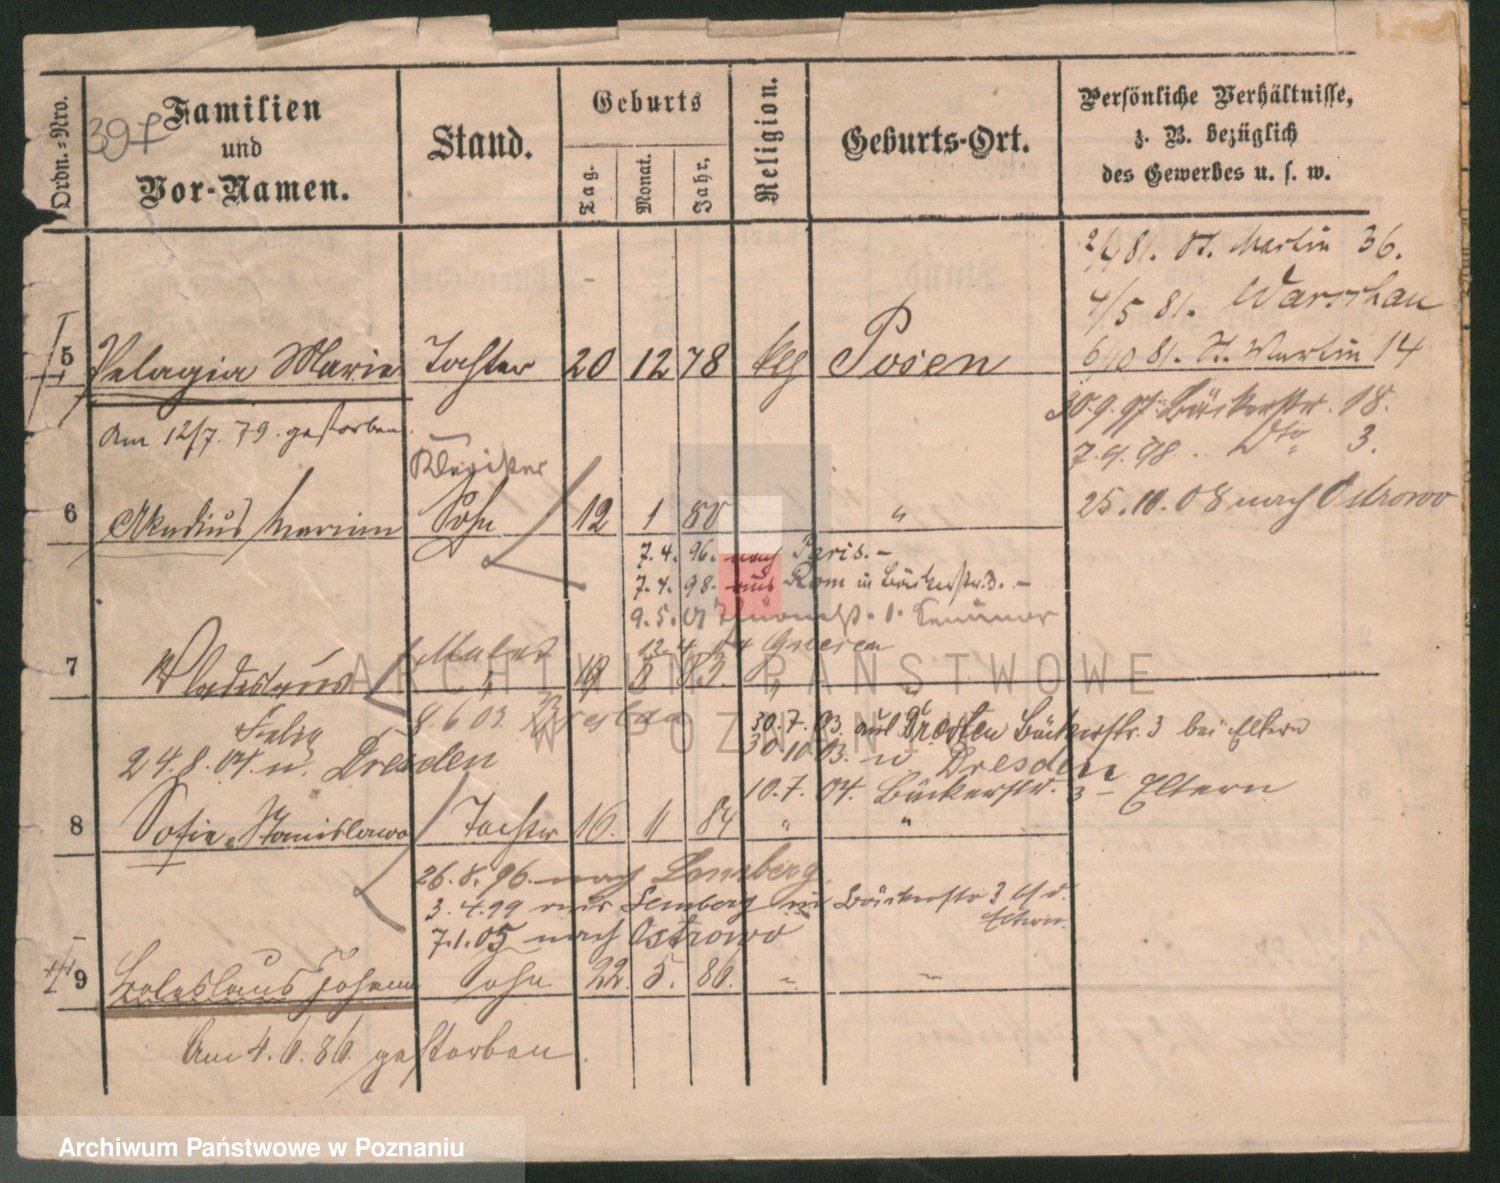 Ordn.=Nro.
Familien
und
Vor-Namen.
Stand.
Geburts
Tag.
Monat.
Jahr.
Religion.
Geburts-Ort.
Persönliche Verhältnisse,
z. B. bezüglich
des Gewerbes u. s. w.
397
2/4 81. St. Martin 36.
4/5 81. Warschau
5 Pelagia Marie Tochter 20 12 78 Posen 6/10 81. St. Martin 14
30.9.97. Bäckerstr. 18.
Am 12/7. 79. gestorben.
7.9.98. Dto 3.
6 Arkadius Marian Sohn 12 1 80 "
25.10.08 nach Ostrowo
7.4.96. nach Paris. -
7.4.98. aus Rom in Bäckerstr. 3. -
9.5.01
12.4.04 Gnesen
7 Wladislaus Maler " 8 83 " "
8.6.03 Breslau
Felix
30.7.03. aus Dresden Bäckerstr. 3 bei Eltern
24.8.04. n. Dresden
30.10.03. n Dresden
10.7.04. Bäckerstr. 3 - Eltern
8 Sofie Stanislawa Tochter 16. 11 84 " "
26.8.96. nach Lemberg.
3.4.99 aus Lemberg in Bäckerstr 3 b/d.
Eltern.
7.1.05 nach Ostrowo
9 Boleslaus Johann Sohn 22. 5. 86. " "
Am 4.6.86. gestorben.
ARCHIWUM PAŃSTWOWE
W POZNANIU
Archiwum Państwowe w Poznaniu